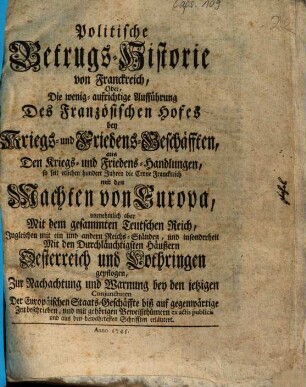 Politische
Betrugs-Historie
von Franckreich,
Oder,
Die wenig-aufrichtige Aufführung
Des Französischen Hofes
bey
Kriegs- und Friedens-Geschäfften,
aus
Den Kriegs- und Friedens-Handlungen,
so seit etlichen hundert Jahren die Crone Franckreich
mit den
Machten von Europa,
vornehmlich aber
Mit dem gesammten Teutschen Reich,
Ingleichen mit ein und andern Reichs-Ständen, und insonderheit
Mit den Durchläuchtigsten Häussern
Oesterreich und Lothringen
gepflogen,
Zur Nachachtung und Warnung bey den jetzigen
Conjuncturen
Der Europäischen Staats-Geschäffte biß auf gegenwärtige
Zeit beschrieben, und mit gehörigen Beweißthümern ex actis publicis
und aus den bewährtesten Schrifften erläutert.
Anno 1745.